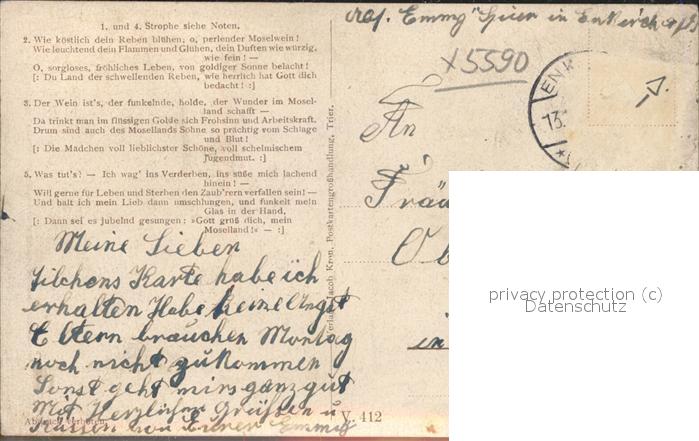 1. und 4. Strophe siehe Noten.
2. Wie köstlich dein Reben blühen, o, perlender Moselwein!
Wie leuchtend dein Flammen und Glühen, dein Duften wie würzig,
wie fein! —
O, sorgloses, fröhliches Leben, von goldiger Sonne belacht!
[: Du Land der schwellenden Reben, wie herrlich hat Gott dich
bedacht! :]
3. Der Wein ist's, der funkelnde, holde, der Wunder im Mosel-
land schafft —
Da trinkt man im flüssigen Golde sich Frohsinn und Arbeitskraft.
Drum sind auch des Mosellands Söhne so prächtig vom Schlage
und Blut!
[: Die Mädchen voll lieblichster Schöne, voll schelmischem
Jugendmut. :]
5. Was tut's! — Ich wag' ins Verderben, ins süße mich lachend
hinein! —
Will gerne für Leben und Sterben den Zaub'rern verfallen sein! —
Und halt ich mein Lieb dann umschlungen, und funkelt mein
Glas in der Hand,
[: Dann sei es jubelnd gesungen: »Gott grüß dich, mein
Moselland!« — :]
Meine Lieben
Karte habe ich
erhalten Habe keine Angst
Eltern brauchen Montag
noch nicht zu kommen
Sonst geht mirs ganz gut
Mit Herzlichen Grüßen u
Küssen von Eurer Emmy
Verlag Jacob Kron, Postkartengroßhandlung, Trier.
V. 412
Emmy in Enkirch
X5590
13.
An
in
privacy protection (c)
Datenschutz